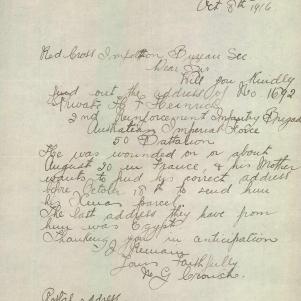 Oct 8th 1916
Red Cross Information Bureau Sec
Dear Sir
Will you Kindly
find out the address of No. 1692
Private H F Heinrich
2nd Reinforcement Infantry Brigade
Australian Imperial Force
50 Battalion
He was wounded on or about
August 20 in France, & his Mother
wants to find his correct address
before October 18th to send him
his Xmas parcel
The last address they have from
him was Egypt
Thanking you in anticipation
I Remain
Yours Faithfully
G Crouch
Postal address